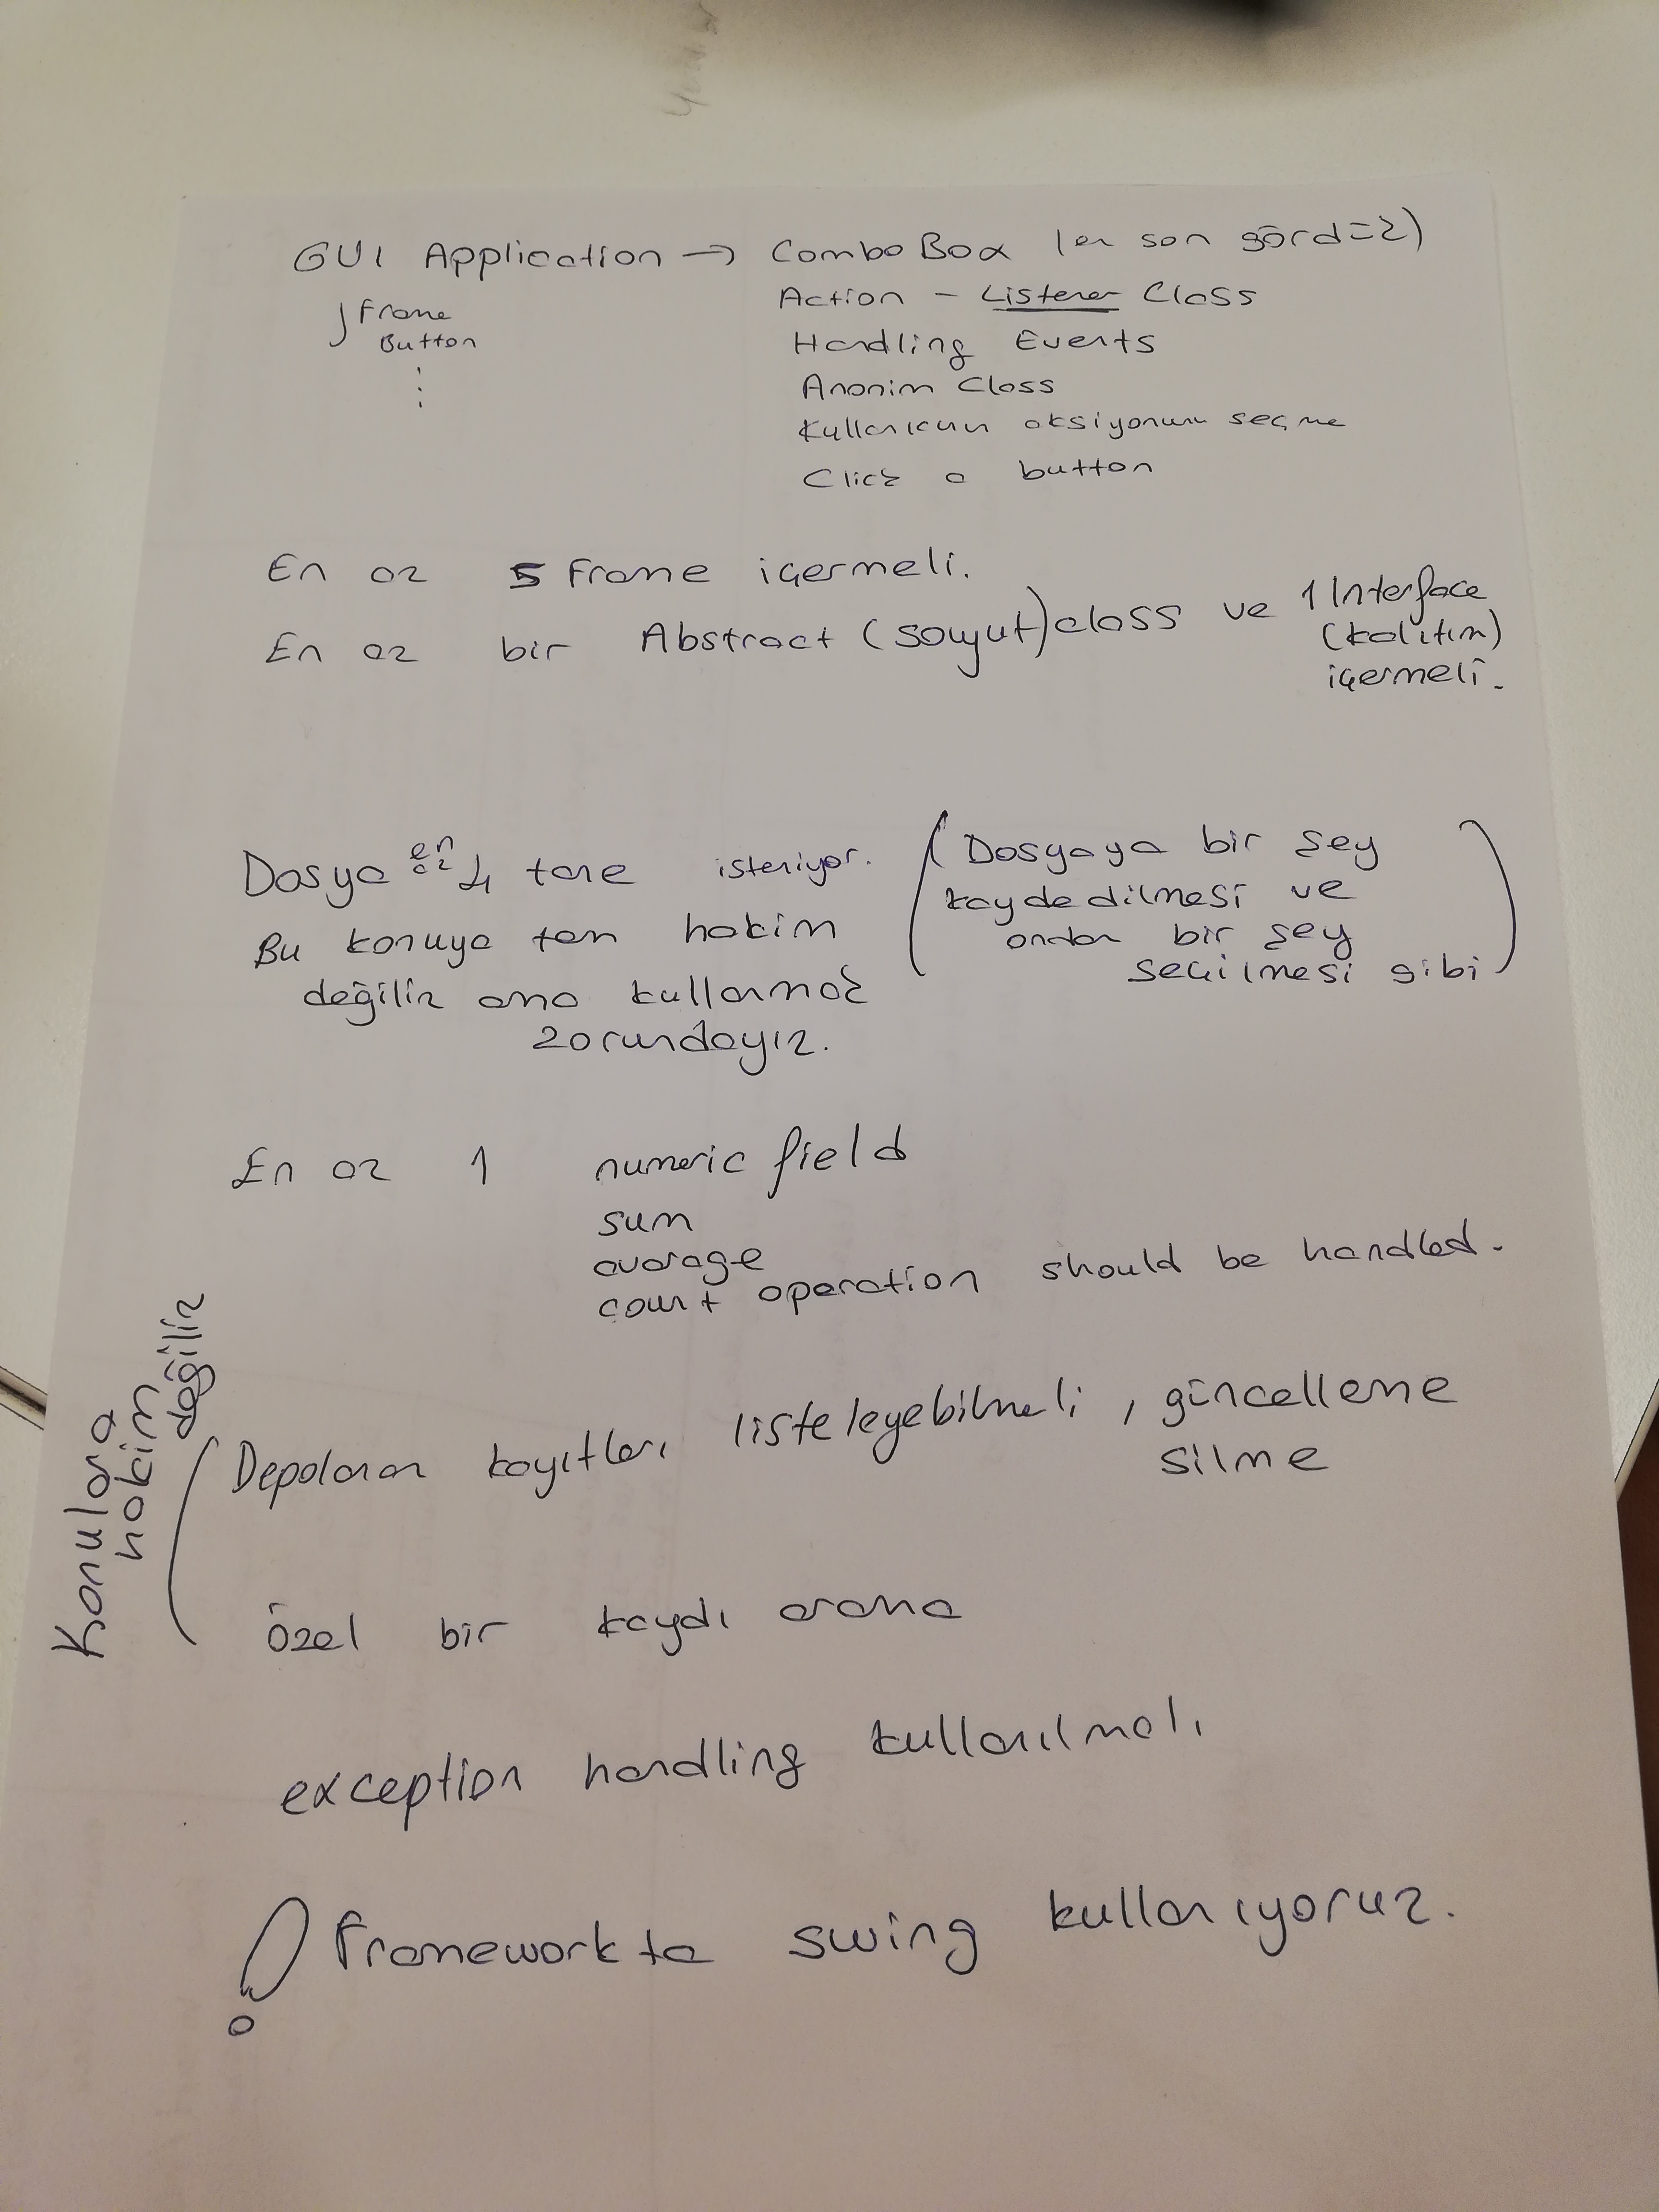 GUI Application → ComboBox (en son gördük)
Frame
Button
Action - Listener Class
Handling Events
Anonim Class
Kullanıcının aksiyonunu seçme
Click a button
En az 5 Frame içermeli.
En az bir Abstract (soyut) class ve 1 Interface
(kalıtım)
içermeli.
Dosya en az 4 tane isteniyor.
Bu konuya tam hakim
değiliz ama kullanmak
zorundayız.
(Dosyaya bir şey
kaydedilmesi ve
ondan bir şey
seçilmesi gibi)
En az 1 numeric field
sum
avarage
count operation should be handled.
Konulara
hakim
değiliz
Depolanan kayıtları listeleyebilmeli, güncelleme
silme
özel bir kaydı arama
exception handling kullanılmalı
! Frameworkte swing kullanıyoruz.